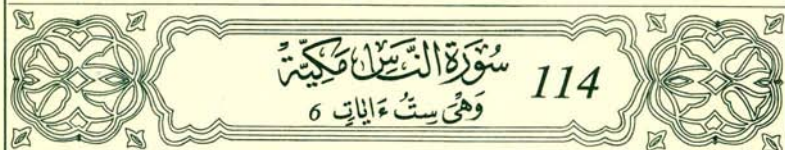 سُورَةُ النَّاسِ مَكِّيَّةٌ 114
وَهْىَ سِتُّ ءَايَاتٍ 6